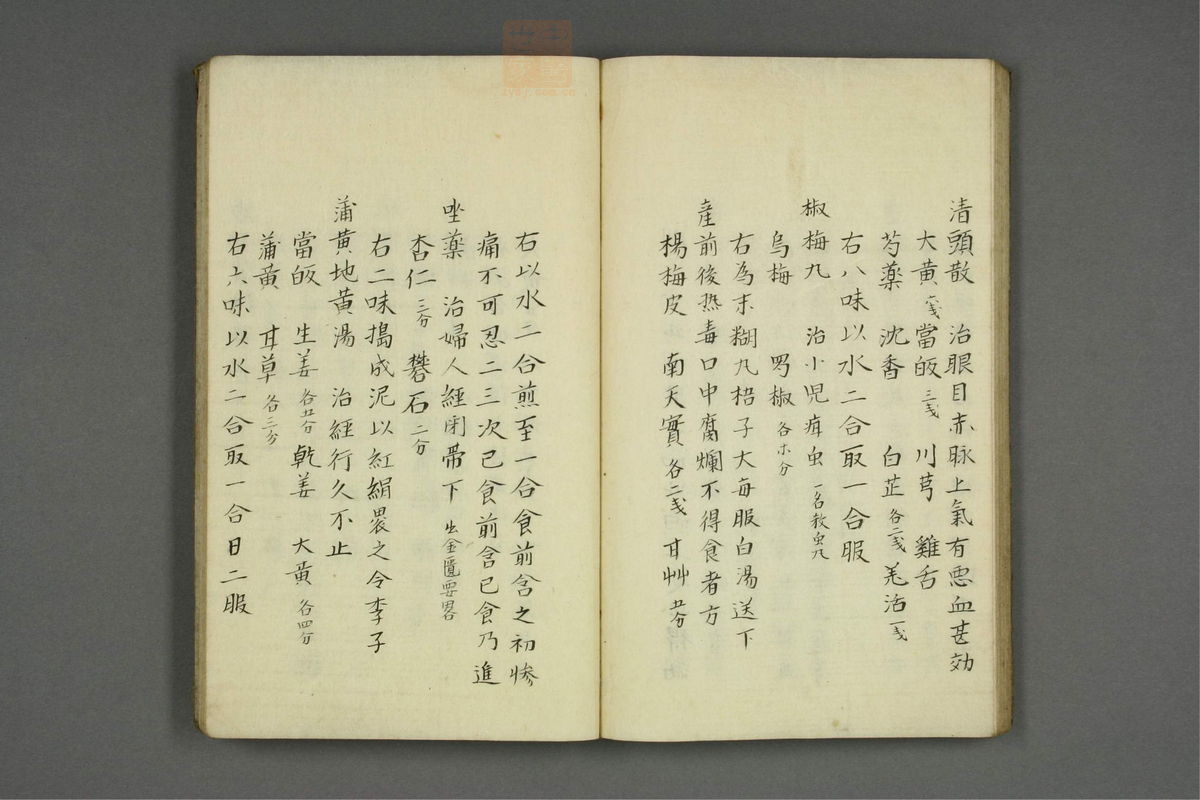 清頭散 治眼目赤脉上氣有悪血甚効
大黄 當皈 三戔 川芎 雞舌
芍薬 沈香 白芷 各二戔 羌活 一戔
右八味以水二合取一合服
椒梅丸 治小児疳虫 一名救虫丸
烏梅 蜀椒 各等分
右為末糊丸梧子大每服白湯送下
産前後熱毒口中腐爛不得食者方
楊梅皮 南天實 各二戔 甘艸 五分
右以水二合煎至一合食前含之初惨
痛不可忍二三次已食前含已食乃進
坐薬 治婦人經闭帶下 出金匱要畧
杏仁 三分 礬石 二分
右二味搗成泥以紅絹褁之令李子
蒲黄地黄湯 治經行久不止
當皈 生姜 各五分 乾姜 大黄 各四分
蒲黄 甘草 各三分
右六味以水二合取一合日二服